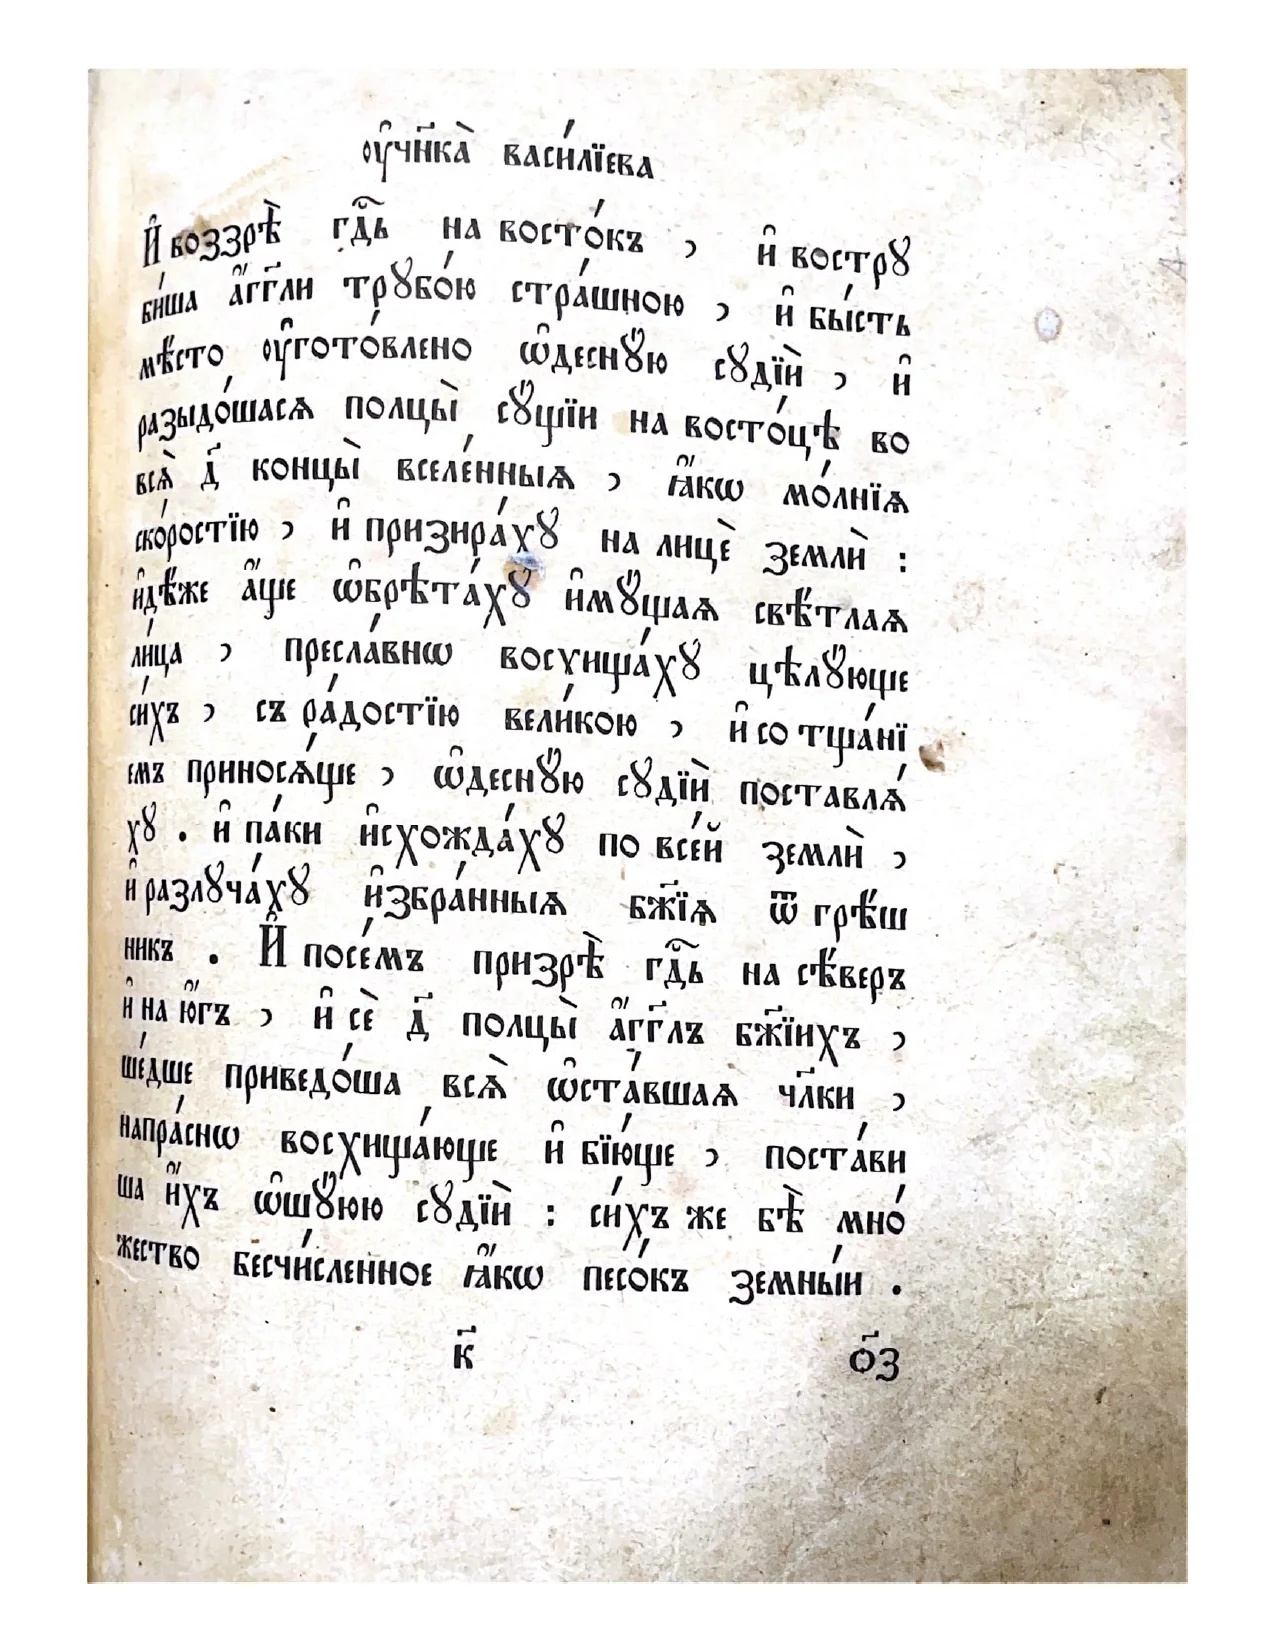 оу҆чн҃ка̀ васи́лїєва
И҆ воззрѣ̀ гдⷭ҇ь на восто́къ , и҆ востру
би́ша а҆́гг҃ли трубо́ю стра́шною , и҆ бы́сть
мѣ́сто оу҆гото́влено ѡ҆десну́ю судїѝ , и҆
разыдо́шасѧ полцы̀ су́щїи на восто́цѣ во
всѧ̀ д҃ концы̀ вселе́нныѧ , ꙗ҆́кѡ мо́лнїѧ
ско́ростїю , и҆ призира́ху на лицѐ землѝ :
и҆дѣ́же а҆́ще ѡ҆брѣта́ху и҆му́щаѧ свѣ́тлаѧ
ли́ца , пресла́внѡ восхища́ху цѣлу́юще
си́хъ , съ ра́достїю вели́кою , и҆ со тща́нї
емъ приносѧ́ще , ѡ҆десну́ю судїѝ поставлѧ́
ху . и҆ па́ки и҆схожда́ху по все́й землѝ ,
и҆ разлуча́ху и҆збра́нныѧ бж҃їѧ ѿ грѣ́ш
никъ . И҆ посе́мъ призрѣ̀ гдⷭ҇ь на сѣ́веръ
и҆ на ю҆́гъ , и҆ сѐ д҃ полцы̀ а҆́гг҃лъ бж҃їихъ ,
ше́дше приведо́ша всѧ̀ ѡ҆ста́вшаѧ чл҃ки ,
напра́снѡ восхища́юще и҆ бїю́ще , поста́ви
ша и҆́хъ ѡ҆шу́юю судїѝ : си́хъ же бѣ̀ мно́
жество бесчи́сленное ꙗ҆́кѡ песо́къ земны́и .
к҃ о҃з